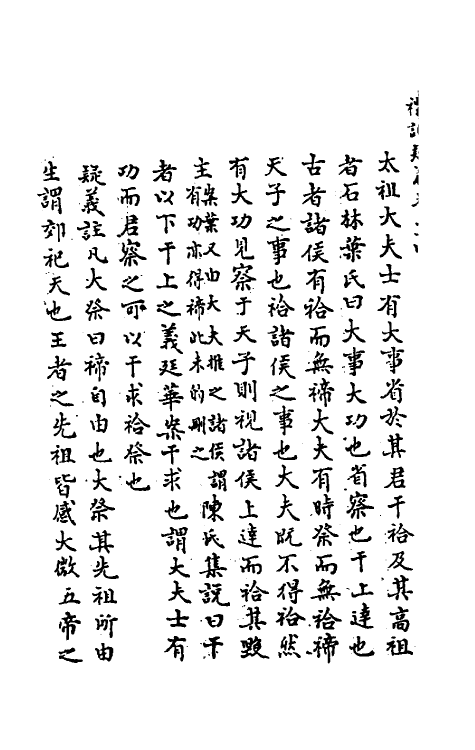 太祖大夫士有大事省於其君干祫及其高祖
者石林葉氏曰大事大功也省察也干上達也
古者諸侯有祫而無禘大夫有時祭而無祫禘
天子之事也祫諸侯之事也大夫既不得祫然
有大功見察于天子則視諸侯上達而祫其毀
主案葉又由大夫推之諸侯謂有功亦得禘此未的刪之陳氏集說曰干
者以下干上之義廷華案干求也謂大夫士有
功而君察之可以干求祫祭也
疑義註凡大祭曰禘自由也大祭其先祖所由
生謂郊祀天也王者之先祖皆感大微五帝之